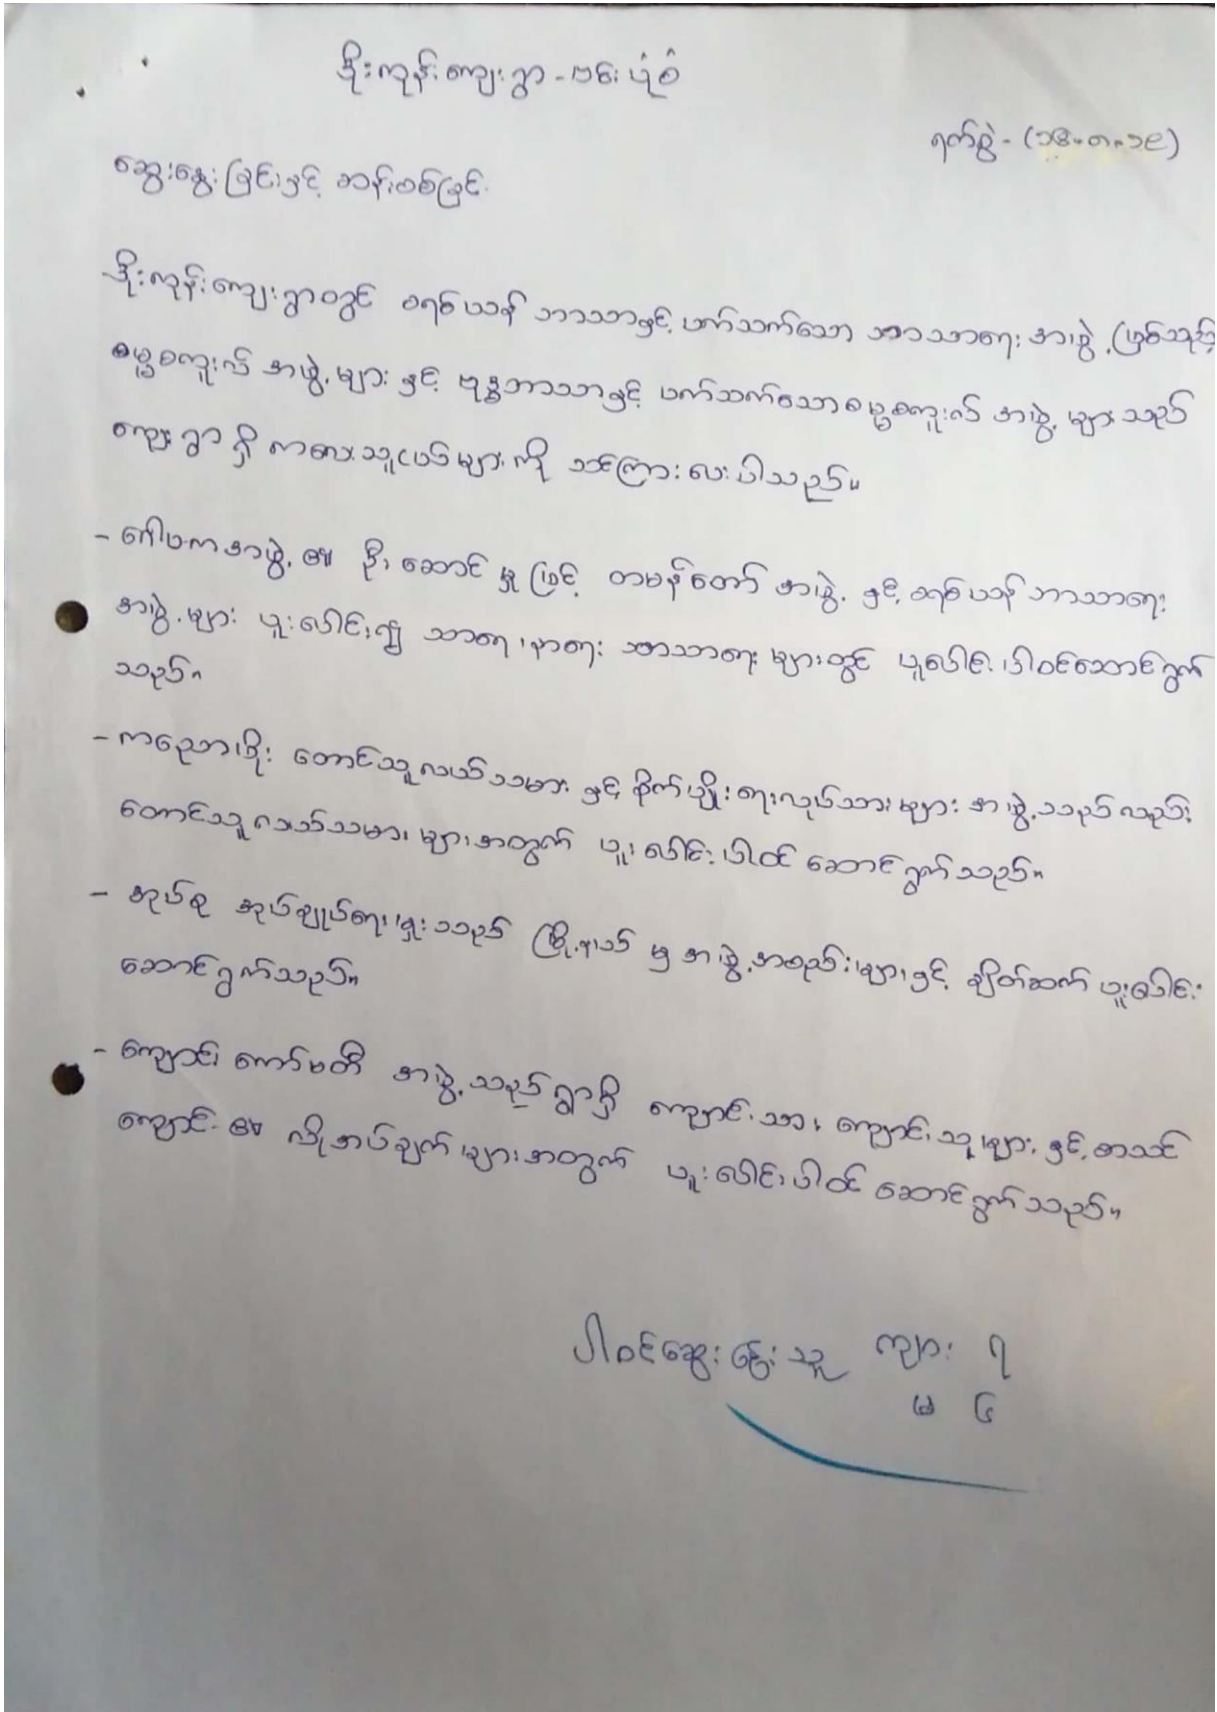 ဒိုးကုန်းကျေးရွာ - ဗင်းပုံစံ
ရက်စွဲ - (၁၆.၈.၁၉)
ဆွေးနွေးခြင်းနှင့် ဆန်းစစ်ခြင်း
ဒိုးကုန်းကျေးရွာတွင် ခရစ်ယာန် ဘာသာနှင့် ပက်သက်သော ဘာသာရေး အဖွဲ့ ဖြစ်သည့်
ဓမ္မစကူးလ် အဖွဲ့များ နှင့် ဗုဒ္ဓဘာသာနှင့် ပက်သက်သော ဓမ္မစကူးလ် အဖွဲ့ များသည်
ကျေးရွာ ရှိ ကလေးသူငယ်များ ကို သင်ကြားပေးပါသည်။
- ဂေါပကအဖွဲ့ ၏ ဦးဆောင်မှု ဖြင့် တမန်တော် အဖွဲ့ နှင့် ခရစ်ယာန် ဘာသာရေး
အဖွဲ့များ ပူးပေါင်း၍ သာရေး၊နာရေး ဘာသာရေး များတွင် ပူးပေါင်း ပါဝင်ဆောင်ရွက်
သည်။
- ကညောဒိုး တောင်သူလယ်သမား နှင့် စိုက်ပျိုးရေးလုပ်သားများ အဖွဲ့သည်လည်း
တောင်သူလယ်သမား များအတွက် ပူးပေါင်းပါဝင် ဆောင်ရွက်သည်။
- အုပ်စု အုပ်ချုပ်ရေးမှူးသည် မြို့နယ် မှ အဖွဲ့အစည်းများနှင့် ချိတ်ဆက် ပူးပေါင်း
ဆောင်ရွက်သည်။
- ကျောင်း ကော်မတီ အဖွဲ့သည် ရွာရှိ ကျောင်းသား၊ ကျောင်းသူများ နှင့် စာသင်
ကျောင်း ၏ လိုအပ်ချက်များအတွက် ပူးပေါင်းပါဝင် ဆောင်ရွက်သည်။
ပါဝင်ဆွေးနွေးသူ ကျား ၇
မ ၆